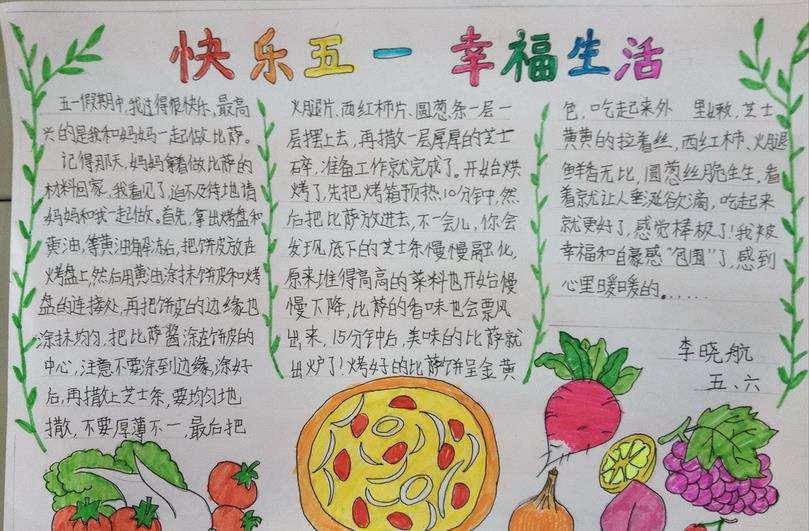 快乐五一 幸福生活
五一假期中,我过得很快乐,最高
兴的是我和妈妈一起做比萨。
记得那天,妈妈拿着做比萨的
材料回家,我看见了,迫不及待地请
妈妈和我一起做。首先,拿出烤盘和
黄油,等黄油解冻后,把饼皮放在
烤盘上,然后用黄油涂抹饼皮和烤
盘的连接处,再把饼皮的边缘也
涂抹均匀,把比萨酱涂在饼皮的
中心,注意不要涂到边缘,涂好
后,再撒上芝士条,要均匀地
撒,不要厚薄不一,最后把
火腿片、西红柿片、圆葱条一层一
层摆上去,再撒一层厚厚的芝士
碎,准备工作就完成了。开始烘
烤了,先把烤箱预热10分钟,然
后把比萨放进去,不一会儿,你会
发现底下的芝士条慢慢融化,
原来堆得高高的菜料也开始慢
慢下降,比萨的香味也会飘
出来,15分钟后,美味的比萨就
出炉了!烤好的比萨饼呈金黄
色,吃起来外 里嫩,芝士
黄黄的拉着丝,西红柿、火腿
鲜香无比,圆葱丝脆生生,看
着就让人垂涎欲滴,吃起来
就更好了,感觉棒极了!我被
幸福和自豪感“包围”了,感到
心里暖暖的......
李晓航
五、六